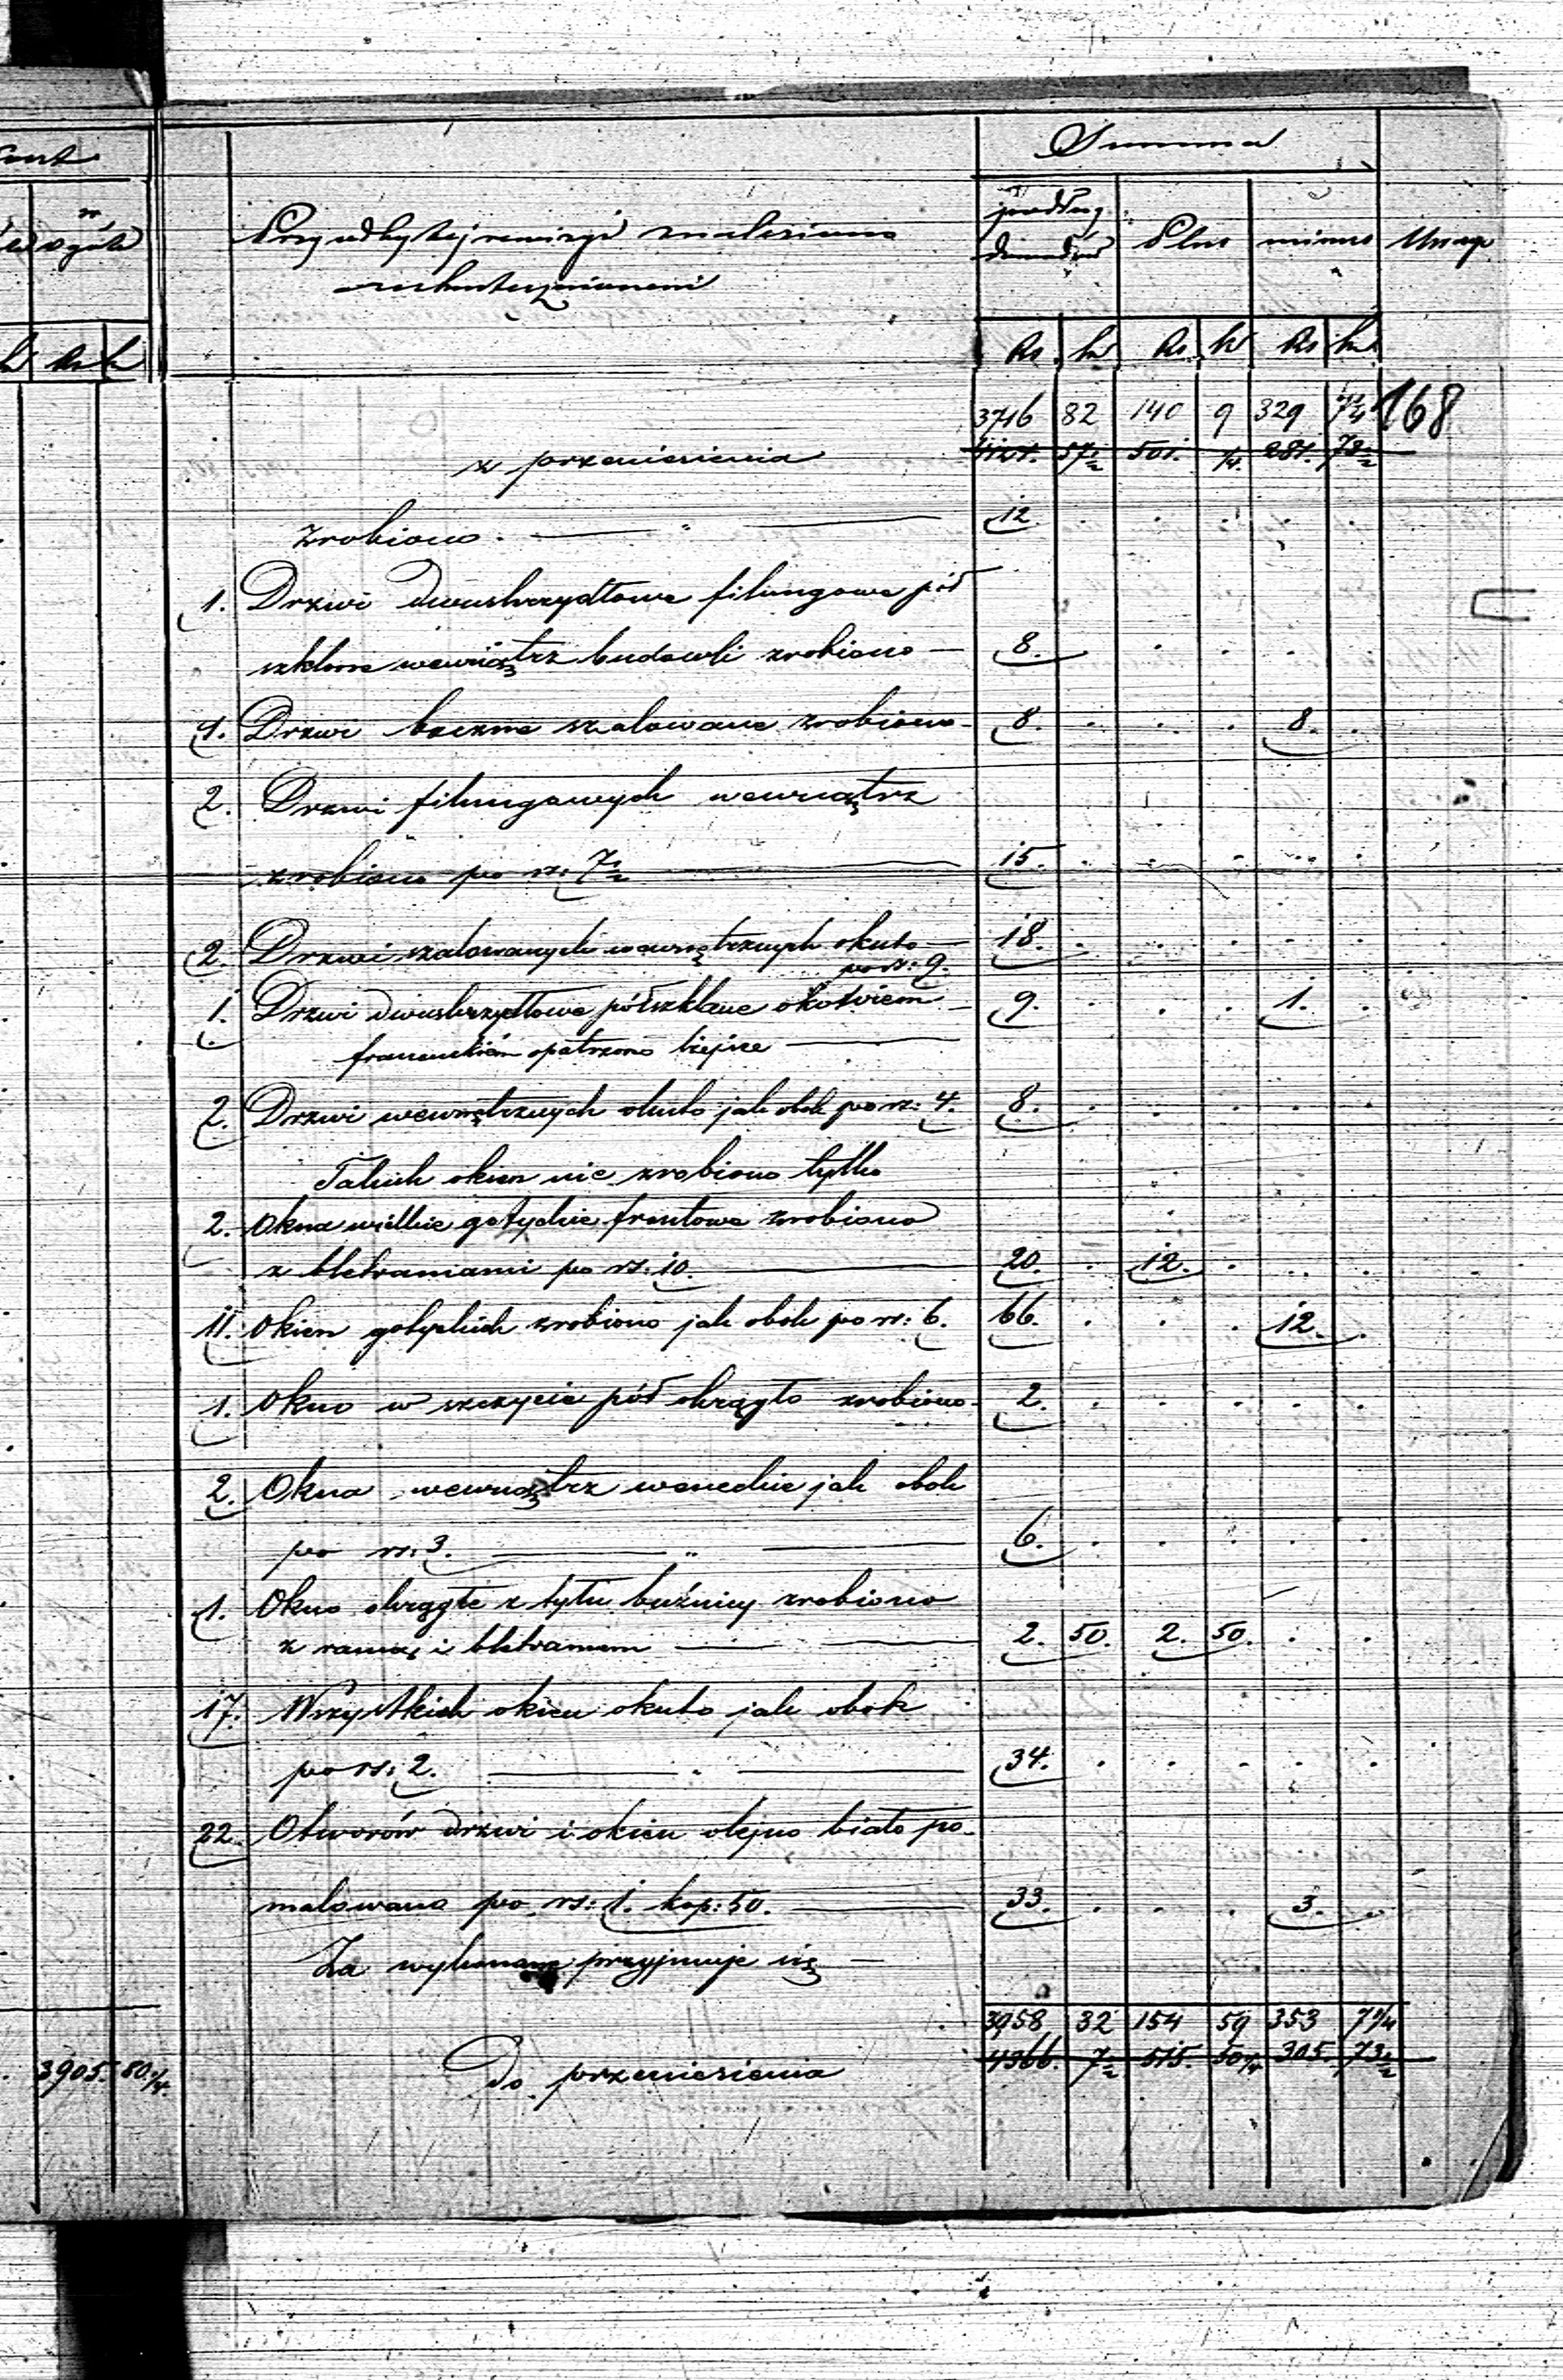 Summa
w
ogóle
Przy odbytej rewizyi znaleziono
uskutecznionem
podług
dowodów
Plus
minus
Uwagi
Rs k
Rs. k Rs. k Rs k.
3716 82 140 9 329 7¼ 168
z przeniesienia 57½ 501. ¼. 281. 73½
zrobiono. — " — 12.
1. Drzwi dwuskrzydłowe filungowe pół
szklone wewnątrz budowli zrobiono — 8.
1. Drzwi boczne szalowane zrobiono - 8. 8.
2. Drzwi filungowych wewnątrz
zrobiono po rs: 7½ — 15.
2. Drzwi szalowanych wewnętrznych okuto — 18.
po rs: 9.
1. Drzwi dwuskrzydłowe półszklane okowiem — 9. 1.
francuskiém opatrzono lżejsze —
2. Drzwi wewnętrznych okuto jak obok po rs: 4. 8.
Takich okien nie zrobiono tylko
2. Okna wielkie gotyckie frontowe zrobiono
z bletramami po rs: 10. — 20. 12.
11. Okien gotyckich zrobiono jak obok po rs: 6. 66. 12.
1. Okno w szczycie pół okrągło zrobiono - 2.
2. Okna wewnątrz weneckie jak obok
po rs: 3. — " — 6.
1. Okno okrągłe z tyłu bużnicy zrobiono
z ramą i bletramem — 2. 50. 2. 50.
17. Wszystkich okien okuto jak obok
po rs: 2. — " — 34.
22. Otworów drzwi i okien olejno biało po-
malowano po rs: 1. kop: 50. — 33. 3.
Za wykonane przyjmuje się —
3958 32 154 59 353 7¼
3905. 80¼. Do przeniesienia 4366. 7½ 515. 50¼ 305. 73½